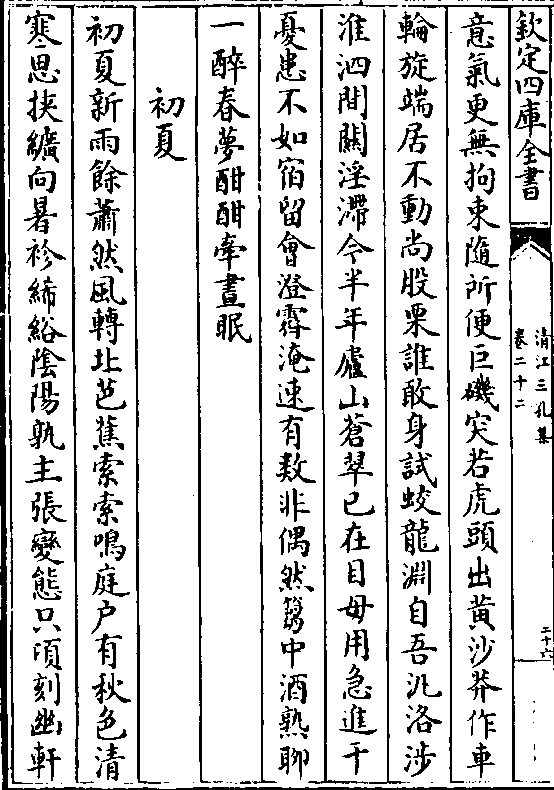 欽定四庫全書
清江三孔集
卷二十二
二十六
意氣更無拘束隨所便巨磯突若虎頭出黄沙莽作車
輪旋端居不動尚股栗誰敢身試蛟龍淵自吾汎洛涉
淮泗間關淫滯今半年廬山蒼翠已在目毋用急進干
憂患不如宿留會澄霽淹速有數非偶然篘中酒熟聊
一醉春夢酣酣牽晝眠
初夏
初夏新雨餘蕭然風轉北芭蕉索索鳴庭户有秋色清
寒思挾纊向暑袗絺綌陰陽孰主張變態只頃刻幽軒